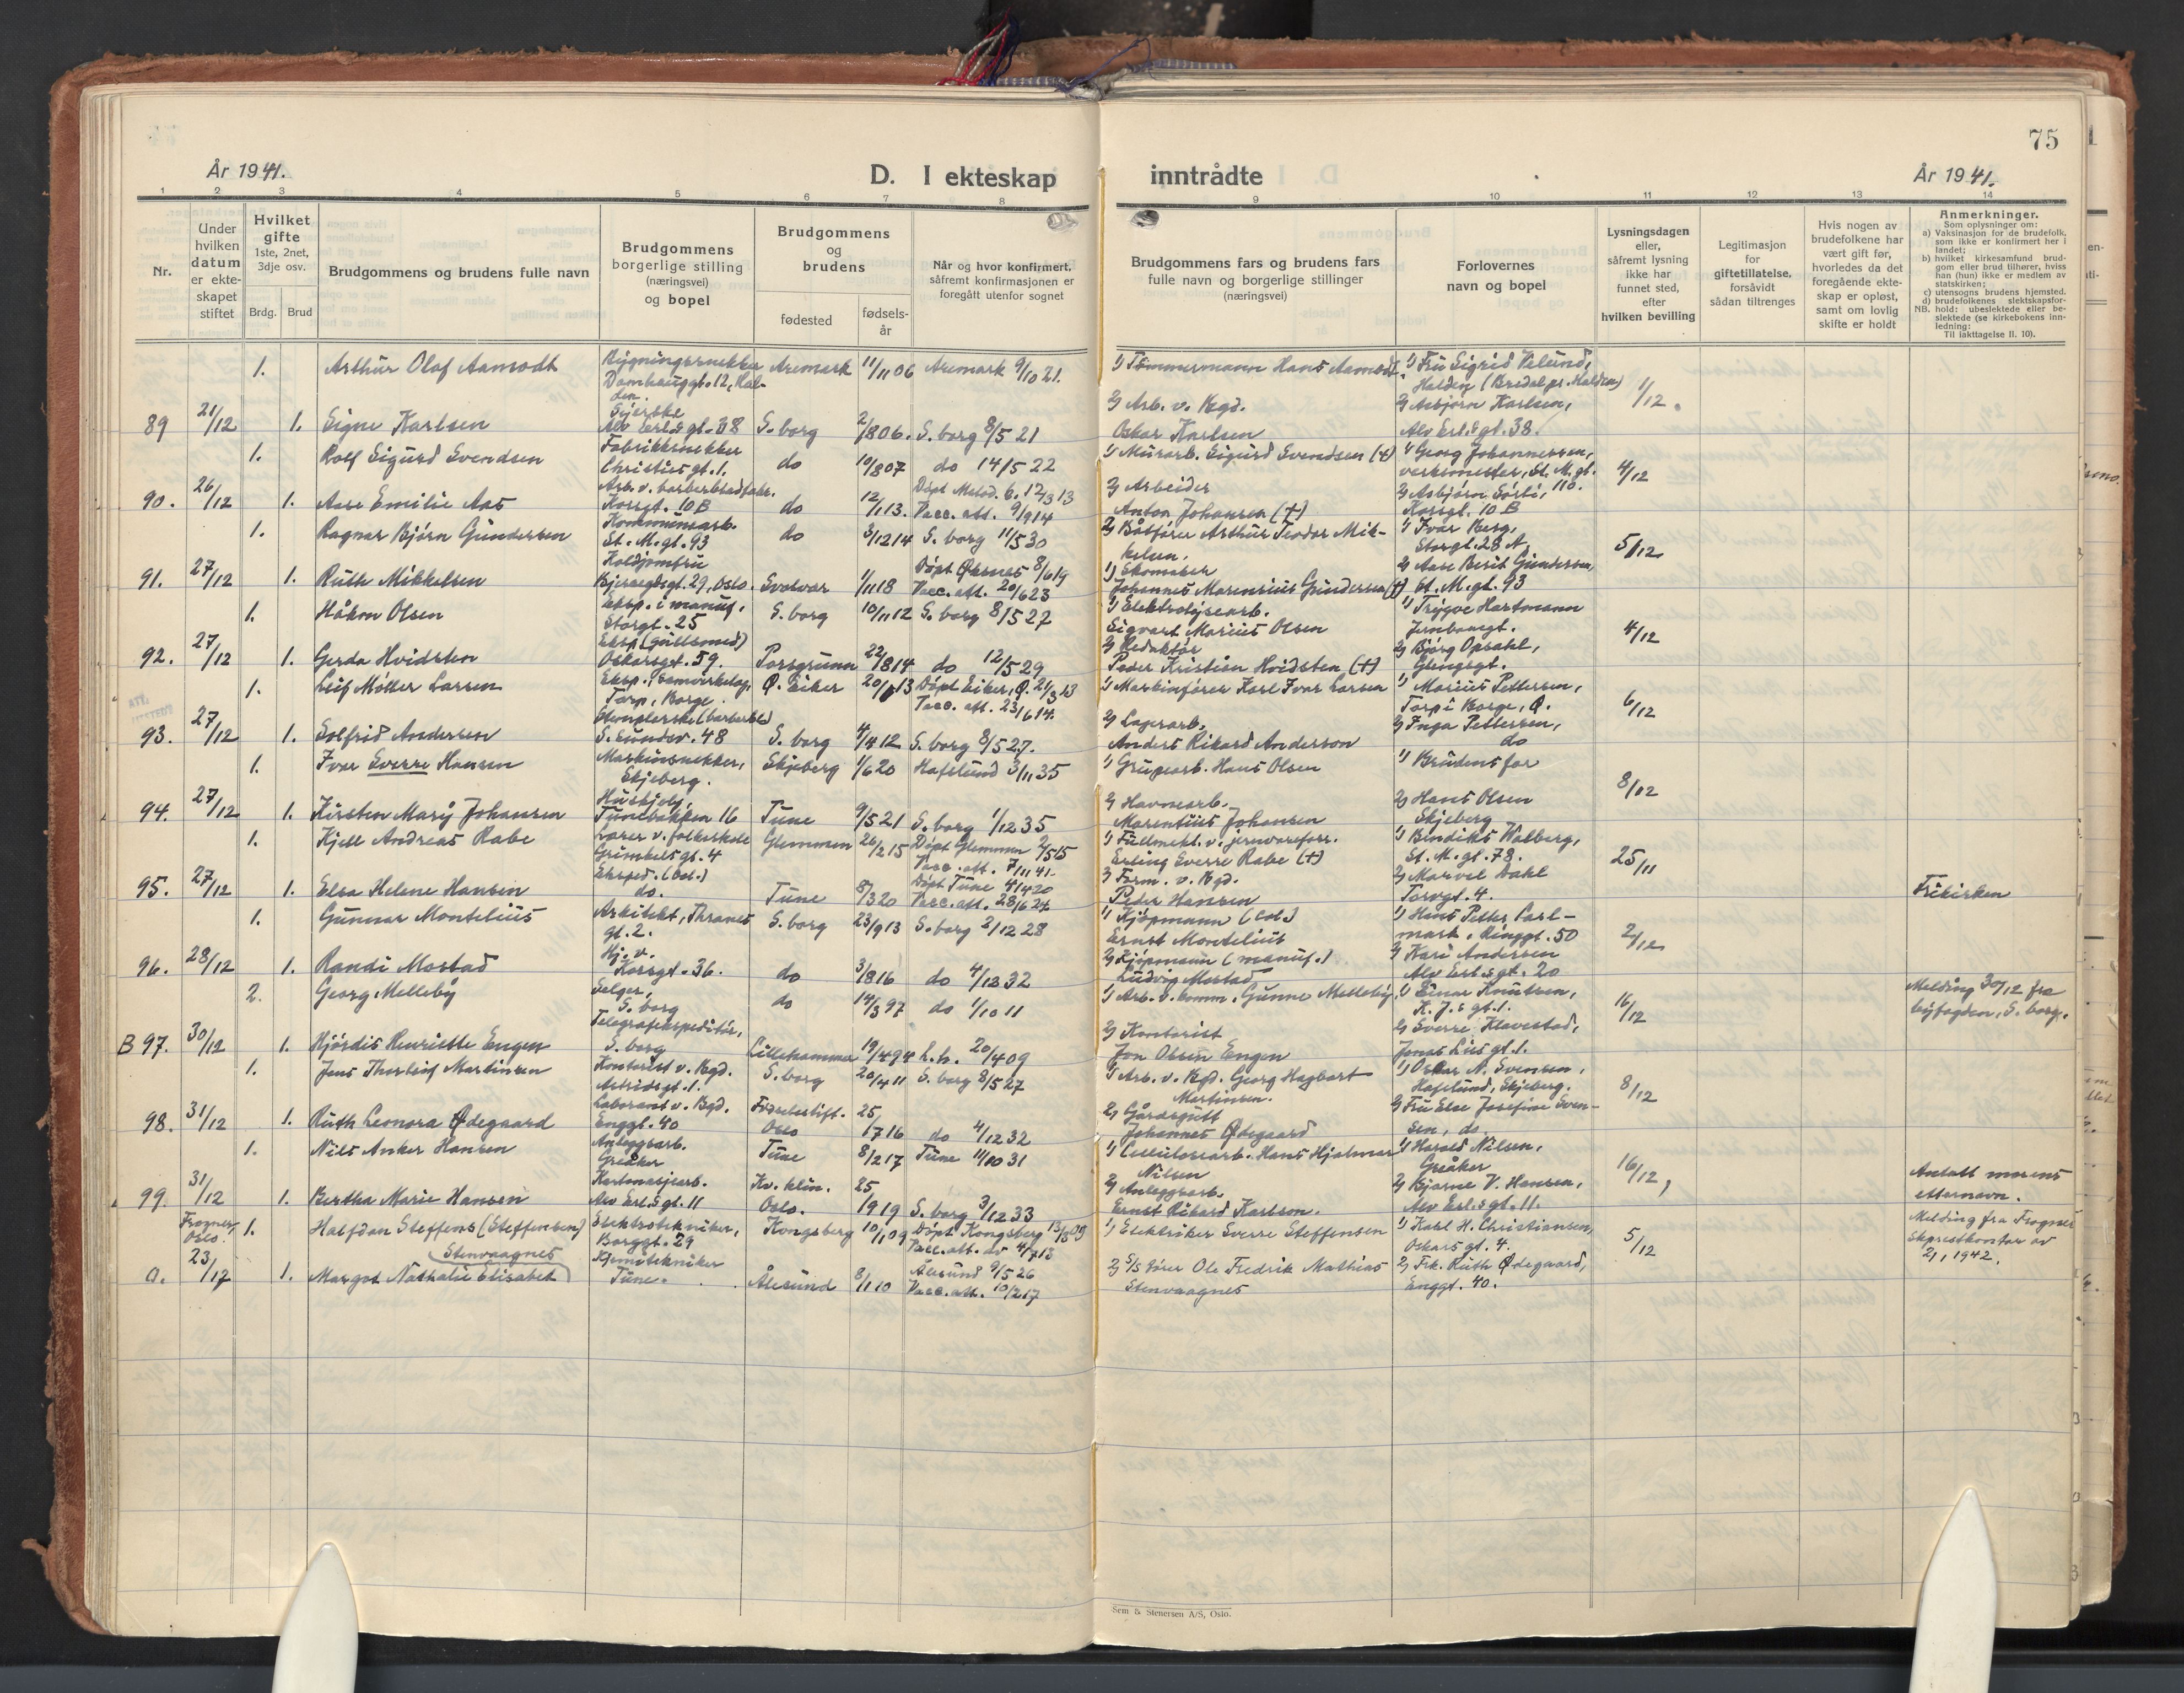 75
År 1941.
D. I ekteskap
inntrådte
År 1941.
1 2 3 4 5 6 7 8 9 10 11 12 13 14
Nr.
Under hvilken datum er ekte-skapet stiftet
Hvilket gifte 1ste, 2net, 3dje osv.
Brdg. Brud
Brudgommens og brudens fulle navn
Brudgommens borgerlige stilling (næringsvei) og bopel
Brudgommens og brudens
fødested
fødsels-år
Når og hvor konfirmert, såfremt konfirmasjonen er foregått utenfor sognet
Brudgommens fars og brudens fars fulle navn og borgerlige stillinger (næringsvei)
Forlovernes navn og bopel
Lysningsdagen eller, såfremt lysning ikke har funnet sted, efter hvilken bevilling
Legitimasjon for giftetillatelse, forsåvidt sådan tiltrenges
Hvis nogen av brudefolkene har vært gift før, hvorledes da det foregående ekte-skap er opløst, samt om lovlig skifte er holdt
Anmerkninger.
Som oplysninger om:
a) Vaksinasjon for de brudefolk, som ikke er konfirmert her i landet;
b) hvilket kirkesamfund brud-gom eller brud tilhører, hviss han (hun) ikke er medlem av statskirken;
c) utensogns brudens hjemsted.
d) brudefolkenes slektskapsfor-hold: ubeslektede eller be-slektede (se kirkebokens inn-ledning:
NB. Til iakttagelse ll. 10).
1. Arthur Olaf Aamodt Bygningssnekker Aremark 11/11 06 Aremark 9/10 21. 1) Tömmermann Hans Aamodt. 1) Fru Sigrid Vilund,
Damhauggt. 12, Hal-den. Halden (Bredalpr. Halden) 1/12.
Syerske 2) Arb. v. Bgd. 2) Asbjørn Karlsen,
89 21/12 1. Signe Karlsen Alv Erl.s gt. 38 S. borg 2/8 06. S. borg 8/5 21 Oskar Karlsen Alv Erl.s gt. 38.
1. Rolf Sigurd Svendsen Fabrikksnekker do 10/8 07 do 14/5 22 1) Murarb. Sigurd Svendsen (+) 1) Georg Johannessen,
Christies gt. 1. verksmester, St. M. gt. 110. 4/12
Arb. v. barberbladfabr. Døpt Metod. k. 12/3 13 2) Arbeider 2) Asbjørn Sörli,
90. 26/12 1. Aase Emilie Aas Korsgt. 10 B do 12/1 13. Vacc. att. 9/9 14 Anton Johansen (+) Korsgt. 10 B
1. Ragnar Bjørn Gundersen Kommunearb. do 3/12 14 S. borg 11/5 30 2) Båtfører Arthur Teodor Mik-kelsen. 1) Ivar Berg,
St. M. gt. 93 Storgt. 28 A. 5/12
Koldjomfru Døpt Øksnes 8/6 19 1) Skomaker 2) Aase Berit Gundersen
91. 27/12 1. Ruth Mikkelsen Bjerregårdsgt. 29, Oslo. Svolvær 1/11 18 Vacc. att. 20/6 23 Johannes Marensius Gundersen (+) St. M. gt. 93
1. Håkon Olsen Eksp. i manuf. S. borg 10/11 12 S. borg 8/5 27 1) Elektrolysearb. 1) Trygve Hartmann
Storgt. 25 Sigvart Marius Olsen Jernbanegt. 4/12
Eksp. (gullsmed) 2) Redaktør 2) Bjørg Opsahl,
92. 27/12 1. Gerda Hvidsten Oskarsgt. 59. Porsgrunn 22/8 14 do 12/5 29 Peder Kristian Hvidsten (+) Glengsgt.
1. Leif Møller Larsen Eksp. i Samvirkelag, Ø. Eiker 20/1 13 Døpt Eiker, Ø. 21/3 13 1) Maskinfører Karl Ivar Larsen 1) Marius Pettersen,
Torp, Borge. Vacc. att. 23/6 14. Torp i Borge, Ø. 6/12
Stemplerske (barberbl.) 2) Lagerarb. 2) Inga Pettersen,
93. 27/12 1. Solfrid Andersen S. Sundsv. 48 S. borg 4/4 12 S. borg 8/5 27. Anders Rikard Anderson do
1. Ivar Sverre Hansen Maskinsnekker, Skjeberg 1/6 20 Hafslund 3/11 35 1) Grubearb. Hans Olsen 1) Brudens far
Skjeberg. 8/12
Hushjelp, 2) Havnearb. 2) Hans Olsen
94. 27/12 1. Kirsten Mary Johansen Tunebakken 16 Tune 9/5 21 S. borg 1/12 35 Marentius Johansen Skjeberg
1. Kjell Andreas Rabe Lærer v. folkeskole Glemmen 26/2 15 Døpt Glemmen 2/5 15 1) Fullmekt. v. jernvareforr. 1) Bendiks Walberg,
Grimkels gt. 4 Vacc. att. 7/11 41. Erling Sverre Rabe (+) St. M. gt. 78. 25/11
Eksped. (kol.) Døpt Tune 4/4 20 2) Form. v. Bgd. 2) Marvel Dahl
95. 27/12 1. Elsa Helene Hansen do. Tune 8/3 20 Vacc. att. 28/6 24 Peder Hansen Torvgt. 4. Frikirken
1. Gunnar Montelius Arkitekt, Thranes gt. 2. S. borg 23/9 13 S. borg 2/12 28 1) Kjøpmann (col.) 1) Hans Petter Carl-
Ernst Montelius mark, Ringgt. 50 2/12
Hj. v. 2) Kjøpmann (manuf.) 2) Kari Andersen
96. 28/12 1. Randi Mostad Korsgt. 36. do 3/8 16 do 4/12 32 Ludvig Mostad Alv Erl.s gt. 20
2. Georg Melleby Selger, do 14/3 97 do 1/10 11 1) Arb. v. komm. Gunne Melleby. 1) Einar Knutsen, Melding 30/12 fra
S. borg K. J.s gt. 1. 16/12 byfogden, S. borg.
Telegrafekspeditør, 2) Kontorist 2) Sverre Klavestad,
B 97. 30/12 1. Hjördis Henriette Engen S. borg Lillehammer 19/4 94 L.h. 20/4 09 Jon Olsen Engen Jonas Lies gt. 1.
1. Jens Thorleif Martinsen Kontorist v. Bgd. S. borg 20/4 11 S. borg 8/5 27 1) Arb. v. Bgd. Georg Hagbart 1) Oskar N. Svensen,
Astridsgt. 1. Martinsen. Hafslund, Skjeberg. 8/12
Laborant v. Bgd. Fødselsstift. 25/ 2) Gårdsgutt 2) Fru Else Josefine Sven-
98. 31/12 1. Ruth Leonora Ødegaard Enggt. 40 Oslo 1716 do 4/12 32 Johannes Ødegaard sen, do.
1. Nils Anker Hansen Anleggsarb. Tune 8/2 17 Tune 11/10 31 1) Cellulosearb. Hans Hjalmar 1) Harald Nilsen,
Greåker Nilsen Greåker 16/12
Kartonasjearb. Kv. klin. 25 2) Anleggsarb. 2) Bjarne V. Hansen, Antatt morens
99. 31/12 1. Bertha Marie Hansen Alv Erl.s gt. 11 Oslo. 1919 S. borg 3/12 33 Ernst Rikard Karlson. Alv Erl.s gt. 11. etternavn.
Frogner, Oslo. 1. Halfdan Steffens (Steffensen) Elektrotekniker, Kongsberg 10/1 09 Døpt Kongsberg 13/3 09 1) Elektriker Sverre Steffensen 1) Karl H. Christiansen, Melding fra Frogner
Borggt. 29 Vacc. att. do 4/7 13 Oskars gt. 4. 5/12 sogneprestkontor av
23/12 Stenvaagnes Kjemitekniker Ålesund 9/5 26 2) S/S fører Ole Fredrik Mathias 2) Frk. Ruth Ødegaard, 2/1 1942.
a. 1. Margot Nathalie Elisabet Tune. Ålesund 8/1 10 Vacc. att. 10/2 17 Stenvaagnes Enggt. 40.
Sem & Stenersen A/S, Oslo.